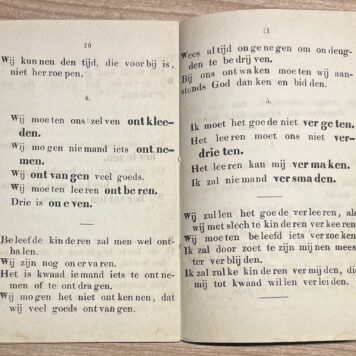 20
Wij kun nen den tijd, die voor bij is,
niet her roe pen.
4.
Wij moe ten ons zel ven ont klee-
den.
Wij mo gen nie mand iets ont ne-
men.
Wij ont van gen veel goeds.
Wij moe ten leeren ont be ren.
Drie is on e ven.
Be leef de kin de ren zal men wel ont-
ha len.
Wij zijn nog on er va ren.
Het is kwaad ie mand iets te ont ne-
men of te ont dra gen.
Wij mo gen het niet ont ken nen, dat
wij veel goeds ont van gen.
21
Wees al tijd on ge ne gen om on deug-
den te be drij ven.
Bij ons ont wa ken moe ten wij aan-
stonds God dan ken en bid den.
5.
Ik moet het goe de niet ver ge ten.
Het lee ren moet ons niet ver-
drie ten.
Het lee ren kan mij ver ma ken.
Ik zal nie mand ver sma den.
Wij zul len het goe de ver lee ren, als
wij met slech te kin de ren ver kee ren.
Wij moe ten be leefd iets ver zoe ken.
Ik zal door zoet te zijn mij nen mees-
ter ver blij den.
Ik zal zul ke kin de ren ver mij den, die
mij tot kwaad wil len ver lei den.